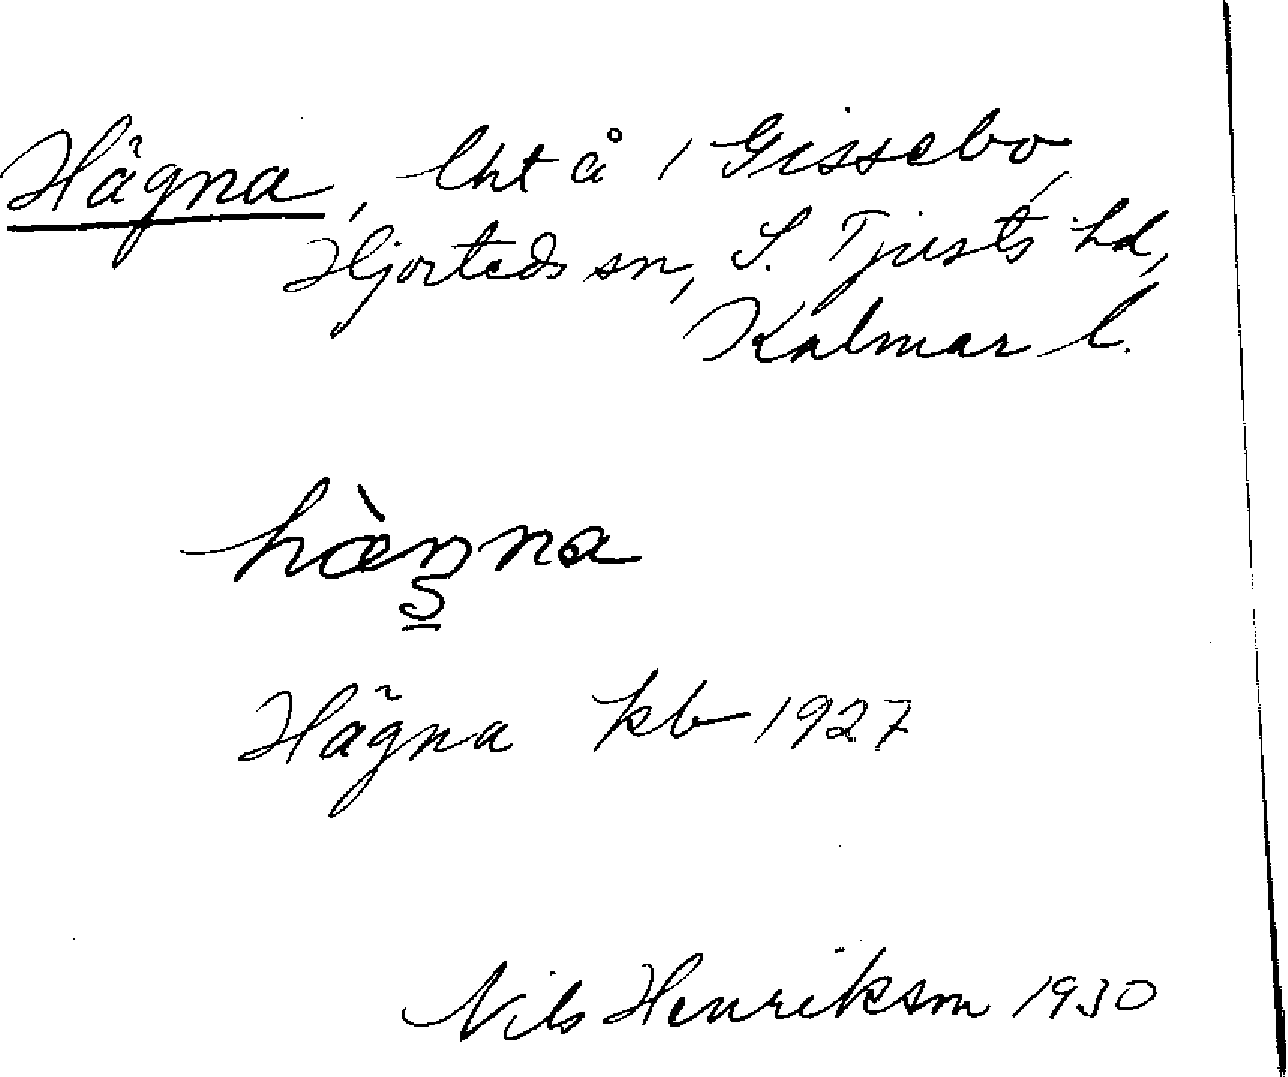 Hägna, lht å 1 Gissebo,
Hjorteds sn, S. Tjusts hd,
Kalmar l.
hæ̀ŋna
Hägna kb 1927
Nils Henrikson 1930